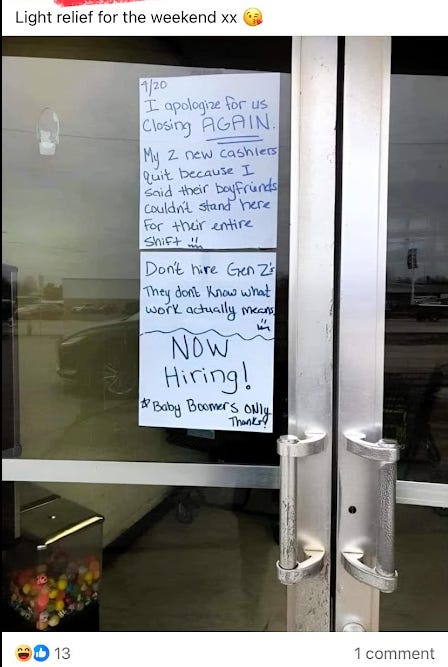 Light relief for the weekend xx 😘
4/20
I apologize for us
Closing AGAIN.
My 2 new cashiers
quit because I
said their boyfriends
couldn't stand here
for their entire
shift
Don't hire Gen Z's
They don't know what
work actually means
NOW
Hiring!
☆ Baby Boomers only
Thanks!
13
1 comment